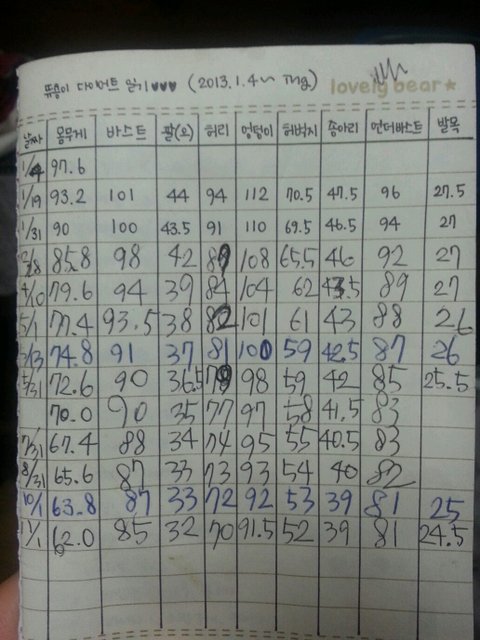 뚱이 다이어트 일기♥♥♥ (2013.1.4~ ing)
lovely bear★
날짜 몸무게 바스트 팔(오) 허리 엉덩이 허벅지 종아리 언더바스트 발목
1/4 97.6
1/19 93.2 101 44 94 112 70.5 47.5 96 27.5
1/31 90 100 43.5 91 110 69.5 46.5 94 27
85.8 98 42 89 108 65.5 46 92 27
4/10 79.6 94 39 84 104 62 43.5 89 27
5/1 77.4 93.5 38 82 101 61 43 88 26
5/13 74.8 91 37 81 100 59 42.5 87 26
5/31 72.6 90 36.5 79 98 59 42 85 25.5
70.0 90 35 77 97 58 41.5 83
7/31 67.4 88 34 74 95 55 40.5 83
8/31 65.6 87 33 73 93 54 40 82
10/1 63.8 87 33 72 92 53 39 81 25
11/1 62.0 85 32 70 91.5 52 39 81 24.5